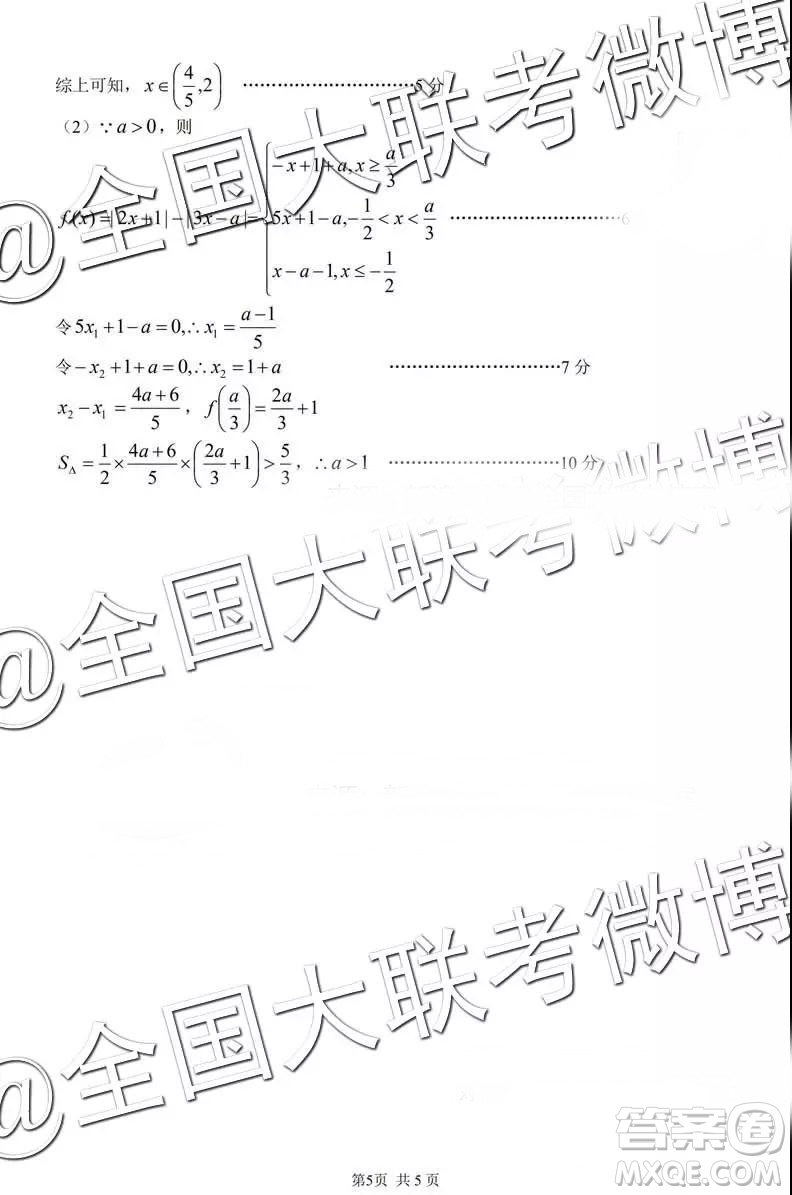 综上可知，x∈(4/5,2) ⋯⋯⋯⋯⋯⋯⋯⋯⋯⋯5 分
（2）∵a>0，则
f(x)=|2x+1|-|3x-a|={-x+1+a,x≥a/3
5x+1-a,-1/2<x<a/3 ⋯⋯⋯⋯⋯⋯⋯⋯⋯⋯6
x-a-1,x≤-1/2
令5x₁+1-a=0,∴x₁=(a-1)/5
令-x₂+1+a=0,∴x₂=1+a ⋯⋯⋯⋯⋯⋯⋯⋯⋯⋯7 分
x₂-x₁=(4a+6)/5，f(a/3)=2a/3+1
S△=1/2×(4a+6)/5×(2a/3+1)>5/3，∴a>1 ⋯⋯⋯⋯⋯⋯⋯⋯⋯⋯10 分
@全国大联考微博
@全国大联考微博
@全国大联考微博
答案卷
MXQE.COM
第5页 共 5 页